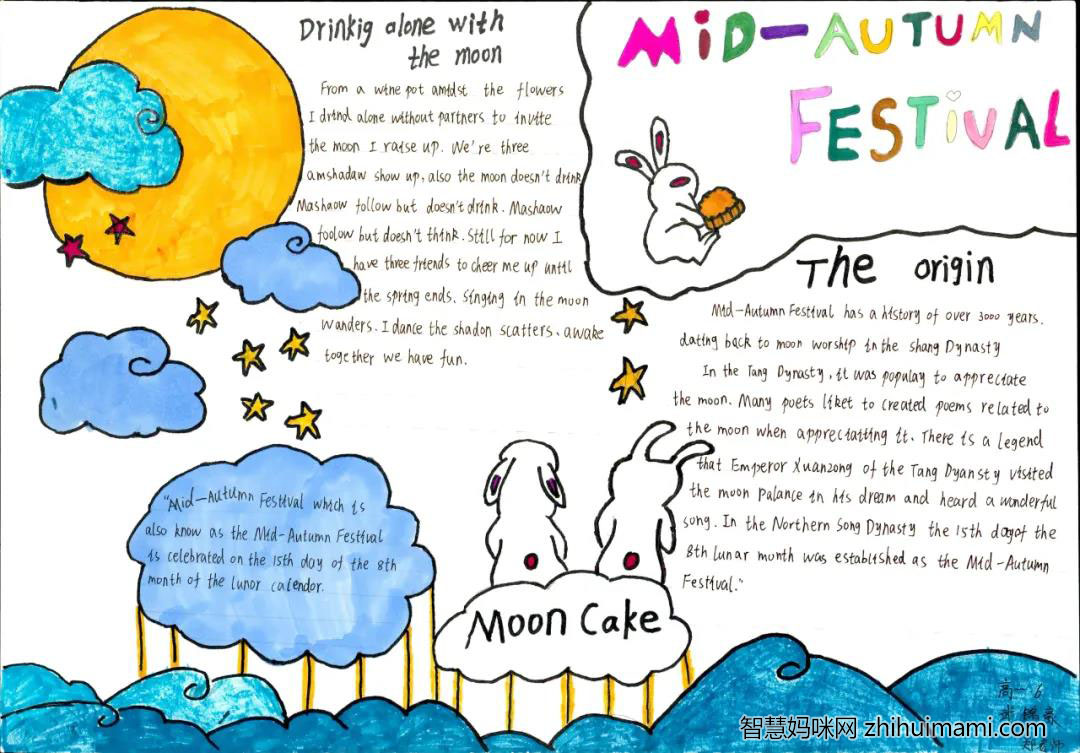 Drinkig alone with
the moon
From a wine pot amidst the flowers
I drind alone without partners to invite
the moon I raise up. We're three
amshadaw show up, also the moon doesn't drink
Mashaow follow but doesn't drink. Mashaow
foolow but doesn't think. Still for now I
have three friends to cheer me up until
the spring ends. Singing in the moon
wanders. I dance the shadon scatters, awake
together we have fun.
MiD-AUTUMN
FESTiVAL
The origin
Mid-Autumn Festival has a history of over 3000 years.
dating back to moon worship in the shang Dynasty
In the Tang Dynasty, it was populay to appreciate
the moon. Many poets liket to created poems related to
the moon when appreciatiing it. There is a legend
that Emperor Xuanzong of the Tang Dyansty visited
the moon Palance in his dream and heard a wonderful
song. In the Northern Song Dynasty the 15th dayof the
8th lunar month was established as the Mid-Autumn
Festival."
"Mid-Autumn Festival which is
also know as the Mid-Autumn Festival
is celebrated on the 15th day of the 8th
month of the lunor calendor.
Moon Cake
高一6
智慧妈咪网 zhihuimami.com